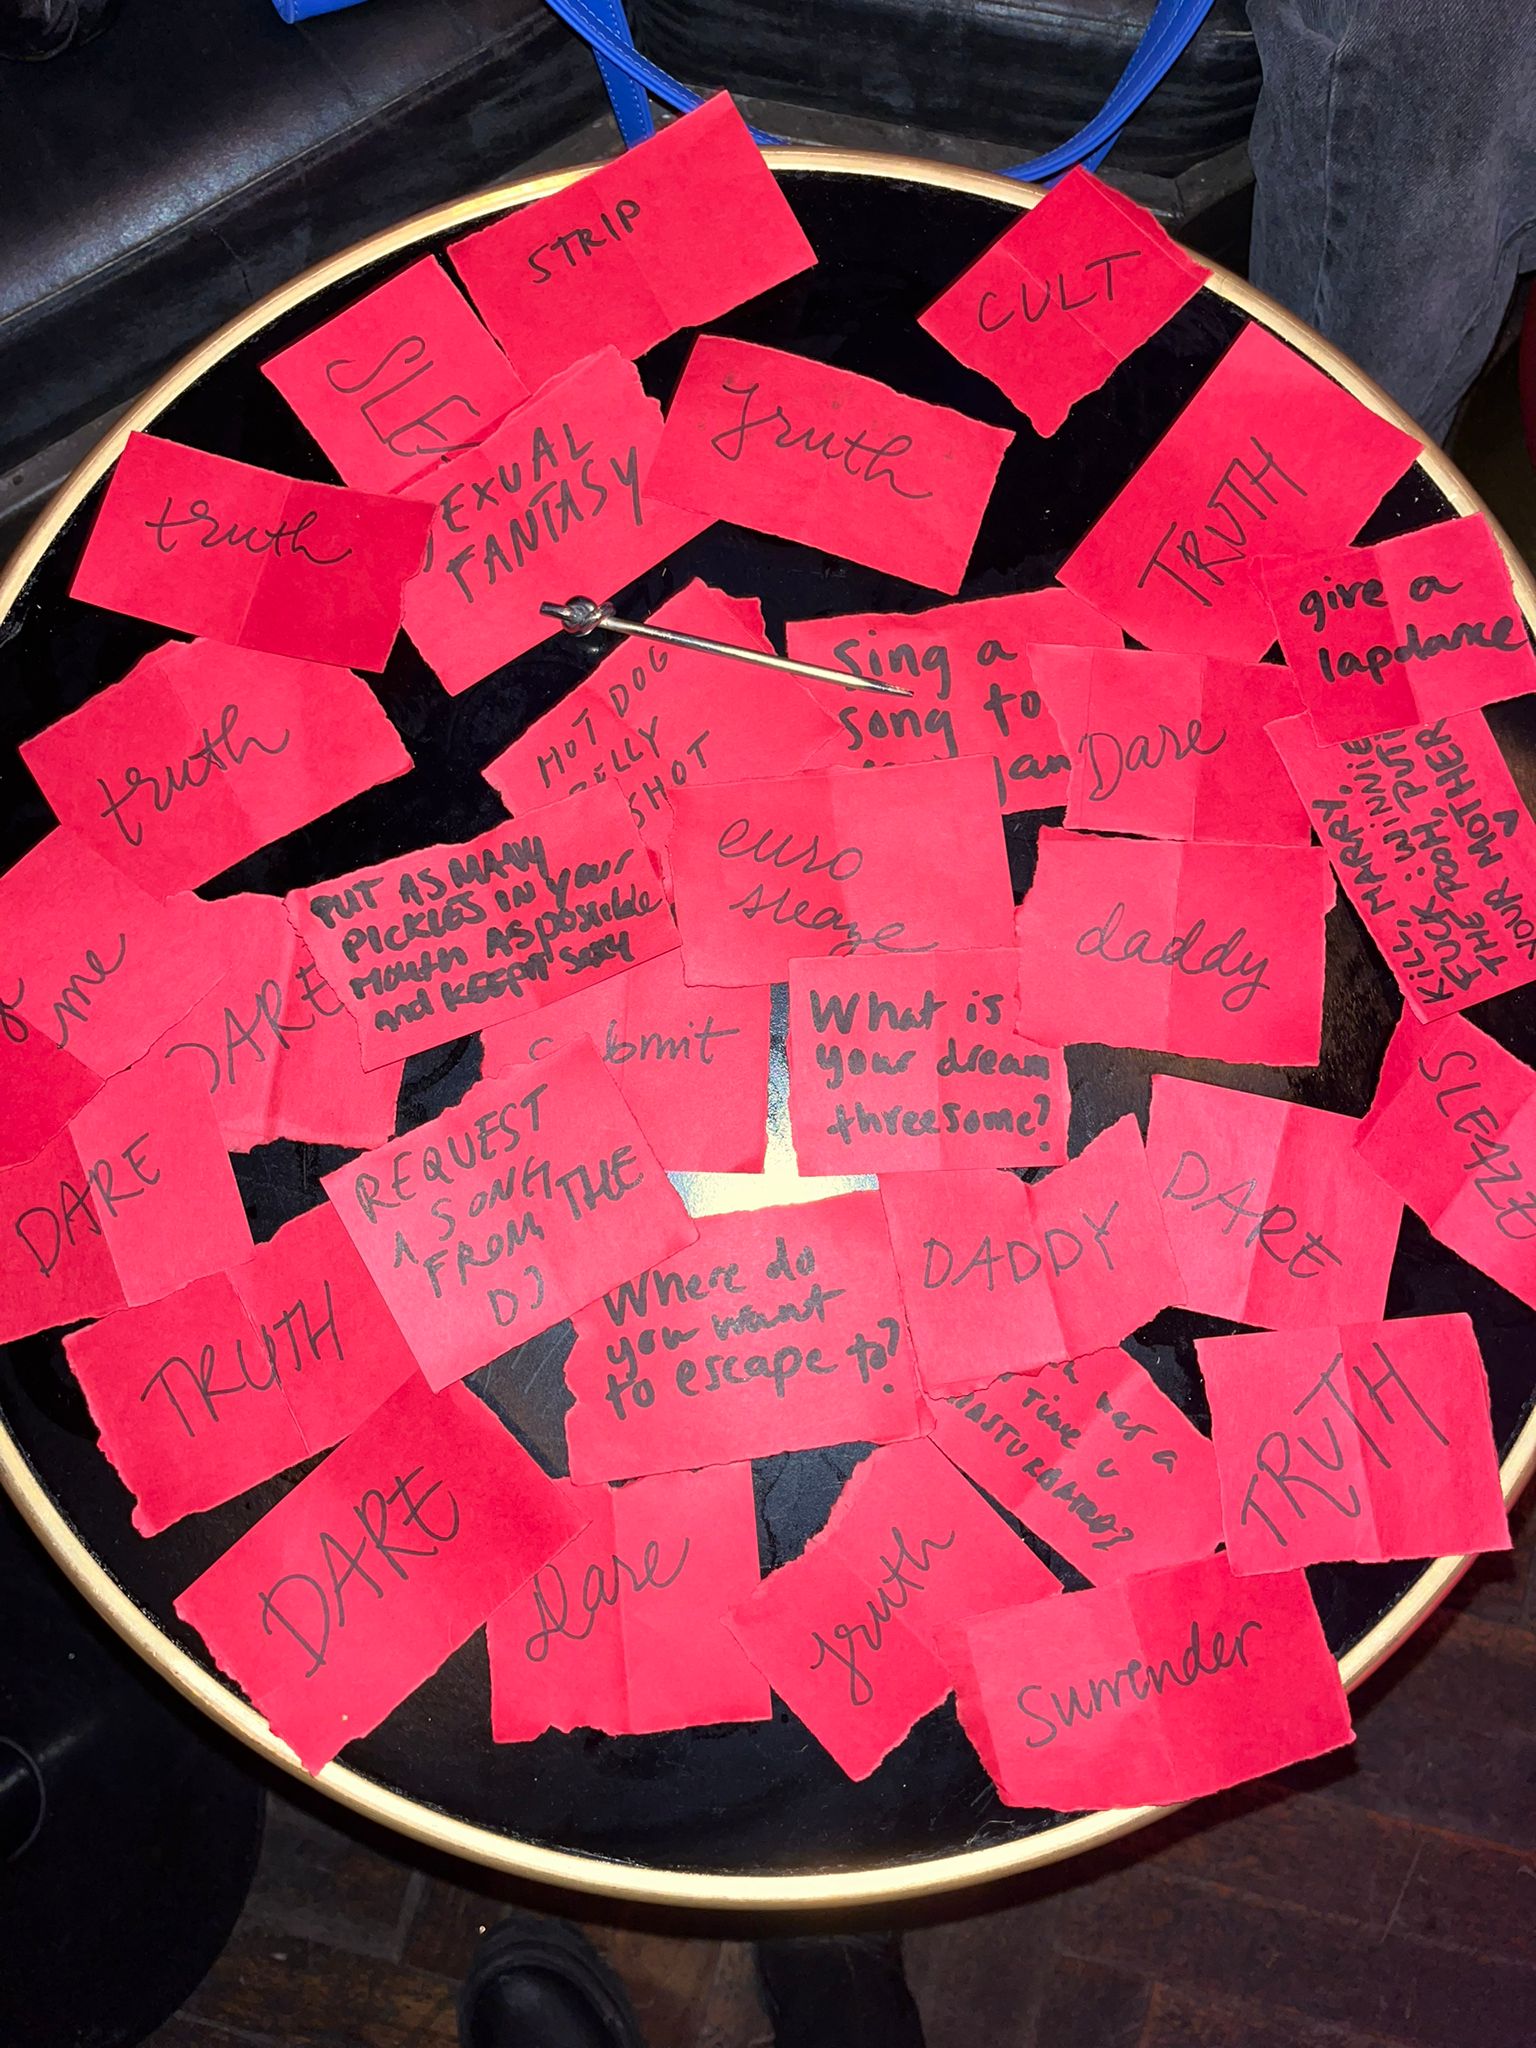 STRIP
CULT
SLE
SEXUAL
FANTASY
truth
TRUTH
truth
give a
lapdance
HOT DOG
BELLY
SHOT
sing a
song to
Dare
KILL, MARRY,
FUCK: WINNIE
THE POOH, PUTIN
YOUR MOTHER
truth
PUT AS MANY
PICKLES IN your
MOUTH AS possible
and KEEP it Sexy
euro
sleaze
daddy
me
DARE
bmit
What is
your dream
threesome?
SLEAZE
DARE
REQUEST
A SONG
FROM THE
DJ
DADDY
DARE
Where do
you want
to escape to?
TRUTH
TRUTH
DARE
Dare
truth
Surrender